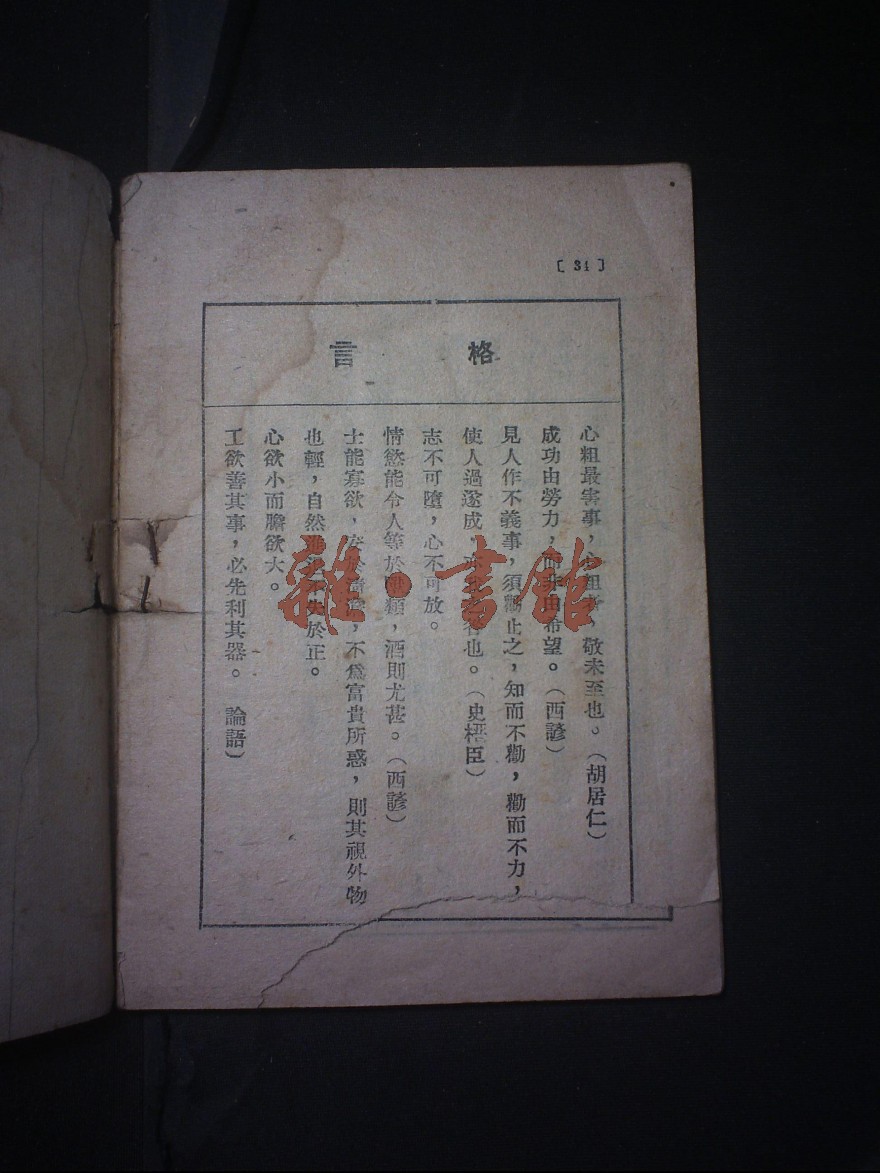 〔 34 〕
格言
心粗最害事，心粗者，敬未至也。（胡居仁）
成功由勞力，而非由希望。（西諺）
見人作不義事，須勸止之，知而不勸，勸而不力，
使人過遂成，亦也。（史搢臣）
志不可墮，心不可放。
情慾能令人等於類，酒則尤甚。（西諺）
士能寡欲，安於，不爲富貴所惑，則其視外物
也輕，自然進退不失於正。
心欲小而膽欲大。
工欲善其事，必先利其器。論語）
雜·書館